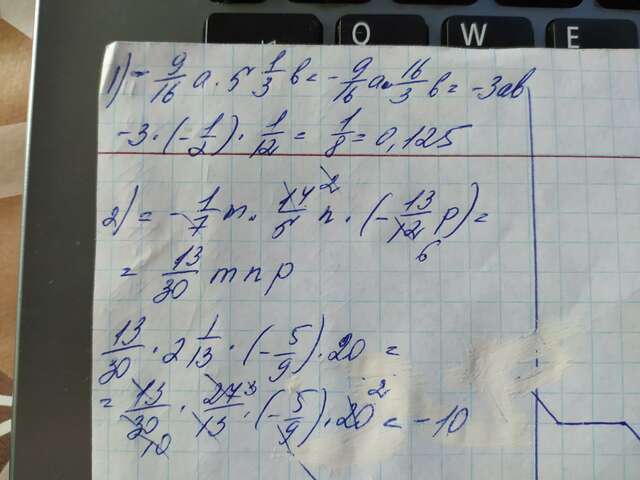 Q W E
1) - 9/16 a · 5 1/3 b = - 9/16 a · 16/3 b = -3ab
-3 · (- 1/2) · 1/12 = 1/8 = 0,125
2) = - 1/7 m · 14/5 2 n · (- 13/12 6 p) =
= 13/30 m n p
13/30 · 2 1/13 · (- 5/9) · 20 =
= 13/30 10 · 27 3/13 · (- 5/9) · 20 2 = -10